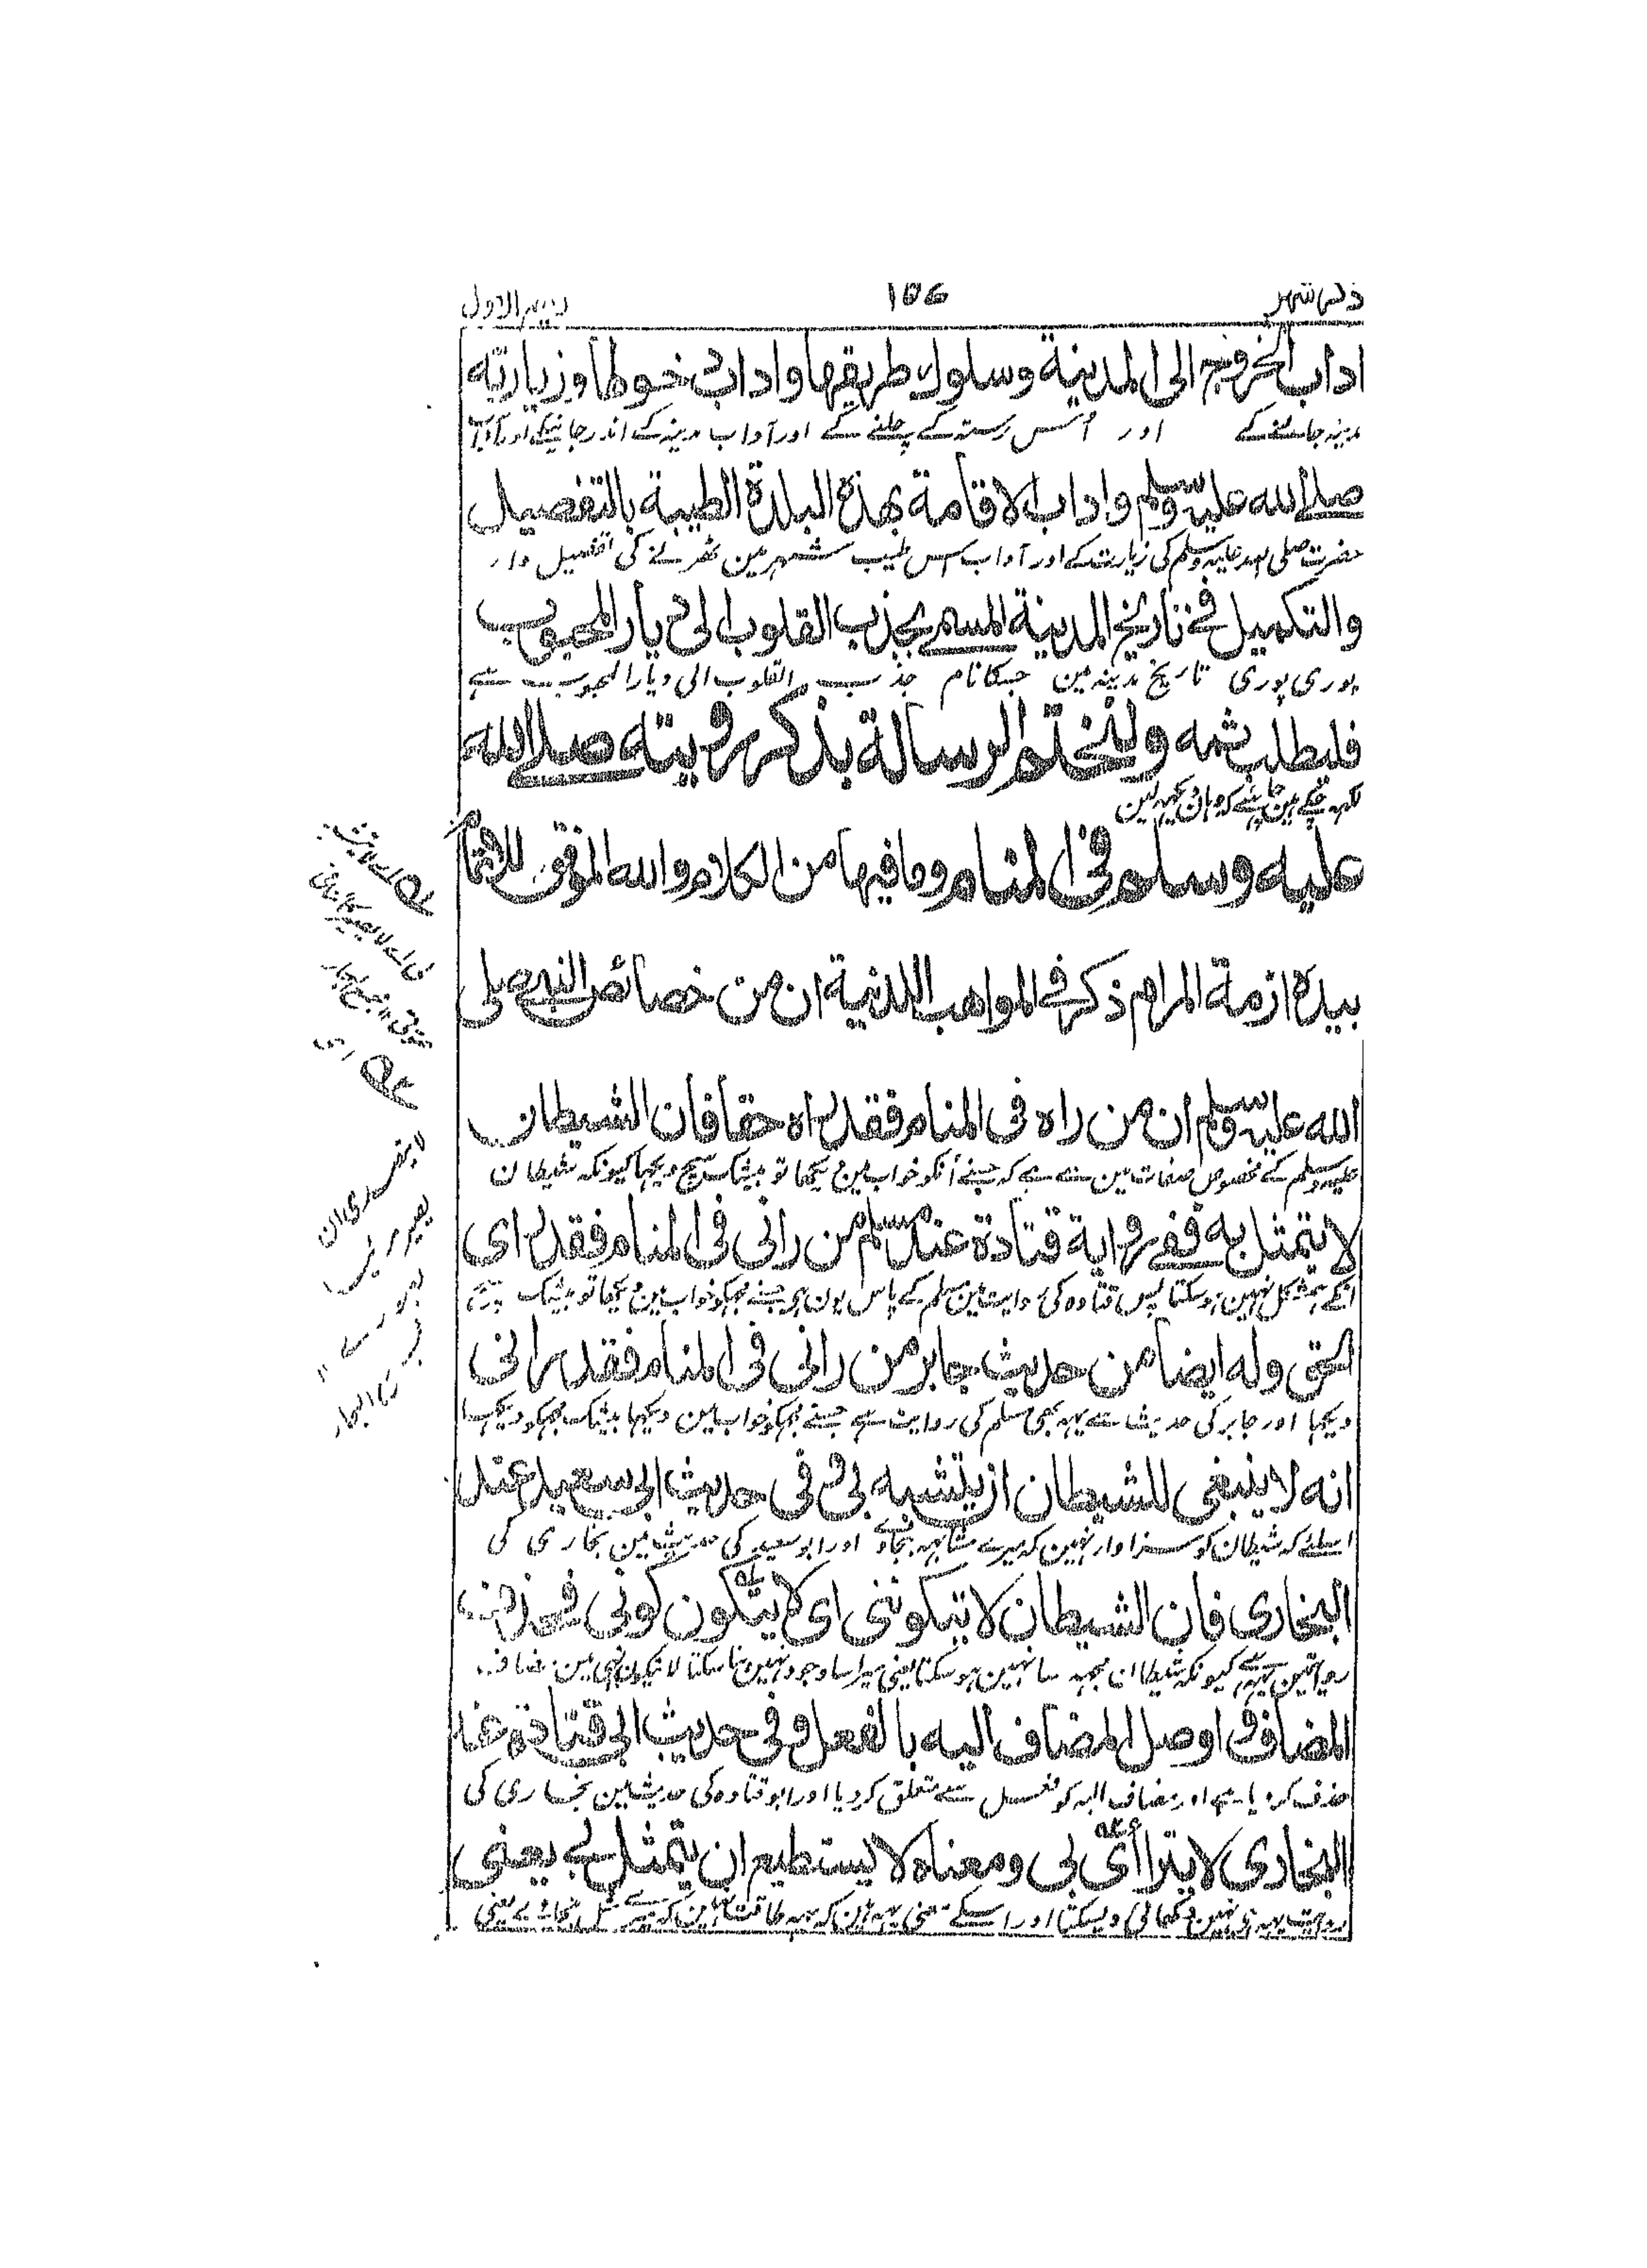 ذكر شهر ١٥٦ ربيع الاول
اداب الخروج الى المدينة وسلوك طريقها واداب دخولها وزيارته
مدینہ جانے کے اور اُس رستہ کے چلنے کے اور آداب مدینہ کے اندر جانیکے اور آداب
صلى الله عليه وسلم واداب الاقامة بهذه البلدة الطيبة بالتفصيل
حضرت صلی اللہ علیہ وسلم کی زیارت کے اور آداب اس طیب شہر مین ٹھرنے کی تفصیل وار
والتكميل في تاريخ المدينة المسمى بجذب القلوب الى ديار المحبوب
پوری پوری تاریخ مدینہ مین جسکا نام جذب القلوب الی دیار المحبوب ہے
فليطلب ثمه ولنختم الرسالة بذكر رؤيته صلى الله
لکہہ چکے ہین چاہئے کہ وہان دیکہہ لین
عليه وسلم في المنام وما فيها من الكلام والله الموفق للاتمام
بيده ازمة المرام ذكر في المواهب اللدنية ان من خصائص النبي صلى
الله عليه وسلم ان من راه فى المنام فقد راه حقا فان الشيطان
علیہ وسلم کے مخصوص صفات مین سے ہے کہ جسنے اُنکو خواب مین دیکھا تو بیشک سچ دیکہا کیونکہ شیطان
لا يتمثل به ففي رواية قتادة عند مسلم من رانى فى المنام فقد راى
انکے ہمشکل نہین ہوسکتا پس قتادہ کی روایت مین مسلم کے پاس یون ہے جسنے مجہکو خواب مین دیکھا تو بیشک
الحق وله ايضا من حديث جابر من رانى فى المنام فقد رانى
دیکہا اور جابر کی حدیث سے یہہ بھی مسلم کی روایت ہے جسنے مجہکو خواب مین دیکہا بیشک مجہکو دیکہا
انه لا ينبغى للشيطان ان يتشبه بى وفى حديث ابى سعيد عند
اسلئے کہ شیطان کو سزاوار نہین کہ میرے مشابہہ بنجاوے اور ابو سعید کی حدیث مین بخاری کی
البخارى فان الشيطان لا يتكوننى اى لا يتكون كونى فحذف
کیونکہ شیطان مجہہ سا نہین ہوسکتا یعنی میرا سا وجود نہین بنا سکتا
المضاف واوصل المضاف اليه بالفعل وفى حديث ابى قتادة عند
حذف کردیا ہے اور مضاف الیہ کو فعل سے متعلق کردیا اور ابو قتادہ کی حدیث مین بخاری کی
البخارى لا يتراأى بى ومعناه لا يستطيع ان يتمثل بى يعنى
روایت یہہ ہی نہین دکھائی دیسکتا اور اسکے معنی یہہ ہین کہ یہہ طاقت نہین کہ میرے مثل بنجائے یعنی